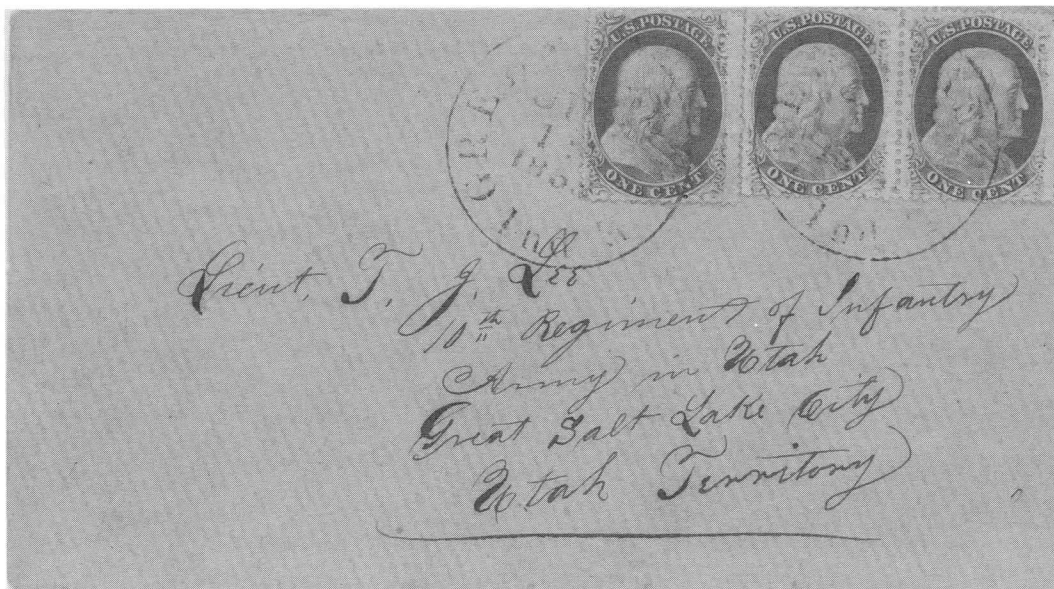 U.S. POSTAGE U.S. POSTAGE U.S. POSTAGE
ONE CENT ONE CENT ONE CENT
Lieut. T. J. Lee
10th Regiment of Infantry
Army in Utah
Great Salt Lake City
Utah Territory